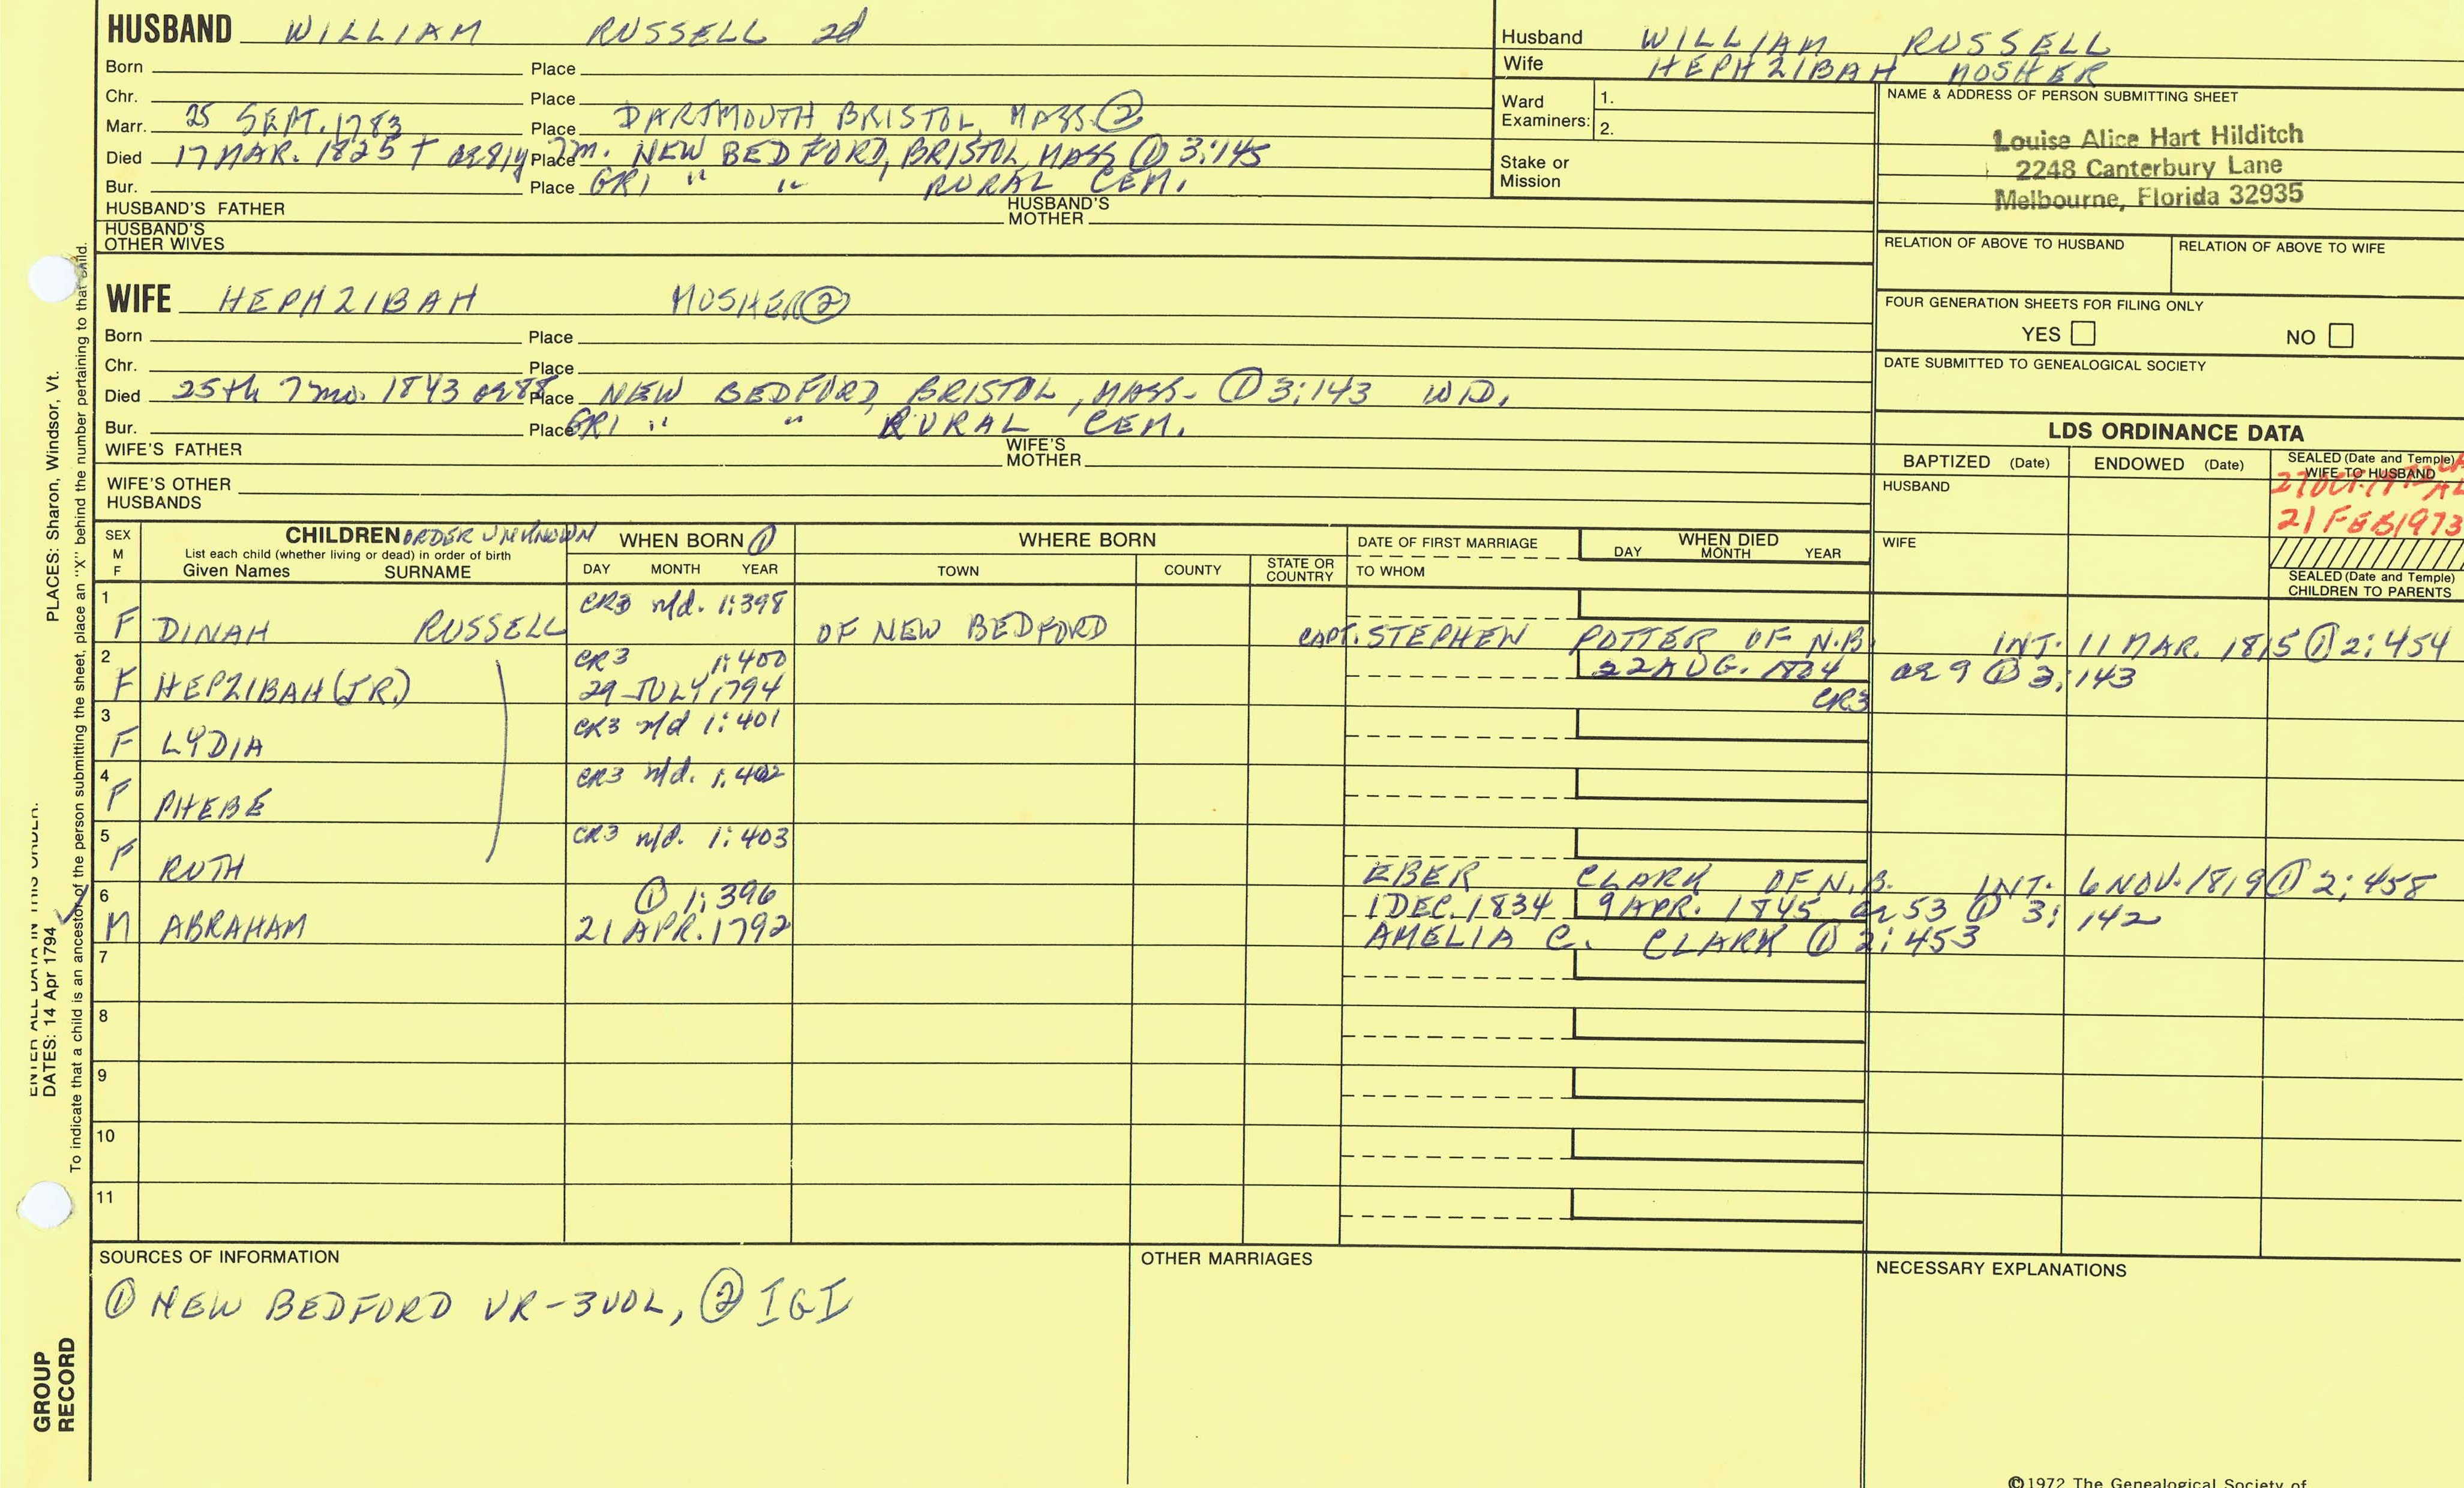 HUSBAND WILLIAM RUSSELL 2d
Born Place
Chr. Place
Marr. 25 SEPT. 1783 Place DARTMOUTH BRISTOL, MASS. ②
Died 17 MAR. 1825 + ae 81y 7m. Place NEW BEDFORD, BRISTOL, MASS ① 3:145
Bur. Place GR1 " " RURAL CEM.
HUSBAND'S FATHER HUSBAND'S MOTHER
HUSBAND'S OTHER WIVES
Husband WILLIAM RUSSELL
Wife HEPHZIBAH MOSHER
Ward Examiners: 1.
2.
Stake or Mission
NAME & ADDRESS OF PERSON SUBMITTING SHEET
Louise Alice Hart Hilditch
2248 Canterbury Lane
Melbourne, Florida 32935
RELATION OF ABOVE TO HUSBAND RELATION OF ABOVE TO WIFE
FOUR GENERATION SHEETS FOR FILING ONLY
YES NO
DATE SUBMITTED TO GENEALOGICAL SOCIETY
WIFE HEPHZIBAH MOSHER ②
Born Place
Chr. Place
Died 25th 7mo. 1843 ae 88 Place NEW BEDFORD, BRISTOL, MASS. ① 3:143 WD.
Bur. Place GR1 " " RURAL CEM.
WIFE'S FATHER WIFE'S MOTHER
WIFE'S OTHER HUSBANDS
LDS ORDINANCE DATA
BAPTIZED (Date) ENDOWED (Date) SEALED (Date and Temple) WIFE TO HUSBAND
HUSBAND
21 FEB 1973
WIFE
SEALED (Date and Temple) CHILDREN TO PARENTS
SEX M F
CHILDREN ORDER UNKNOWN
List each child (whether living or dead) in order of birth
Given Names SURNAME
WHEN BORN ①
DAY MONTH YEAR
WHERE BORN
TOWN COUNTY STATE OR COUNTRY
DATE OF FIRST MARRIAGE
TO WHOM
WHEN DIED
DAY MONTH YEAR
1 CR3 n/d. 1:398
F DINAH RUSSELL OF NEW BEDFORD CAPT. STEPHEN POTTER OF N.B. INT. 11 MAR. 1815 ① 2:454
2 CR3 1:400 22 AUG. 1804 ae 9 ① 3:143
F HEPZIBAH (JR.) 29 JULY 1794 CR3
3 CR3 n/d 1:401
F LYDIA
4 CR3 n/d. 1:402
F PHEBE
5 CR3 n/d. 1:403
F RUTH EBER CLARK OF N.B. INT. 6 NOV. 1819 ① 2:458
6 ① 1:396 1 DEC. 1834 9 APR. 1845 ae 53 ① 3:142
M ABRAHAM 21 APR. 1792 AMELIA C. CLARK ① 2:453
7
8
9
10
11
SOURCES OF INFORMATION
① NEW BEDFORD VR-3VOL, ② IGI
OTHER MARRIAGES
NECESSARY EXPLANATIONS
©1972 The Genealogical Society of
PLACES: Sharon, Windsor, Vt.
ENTER ALL DATA IN THIS ORDER:
DATES: 14 Apr 1794
To indicate that a child is an ancestor of the person submitting the sheet, place an "X" behind the number pertaining to that child.
GROUP RECORD